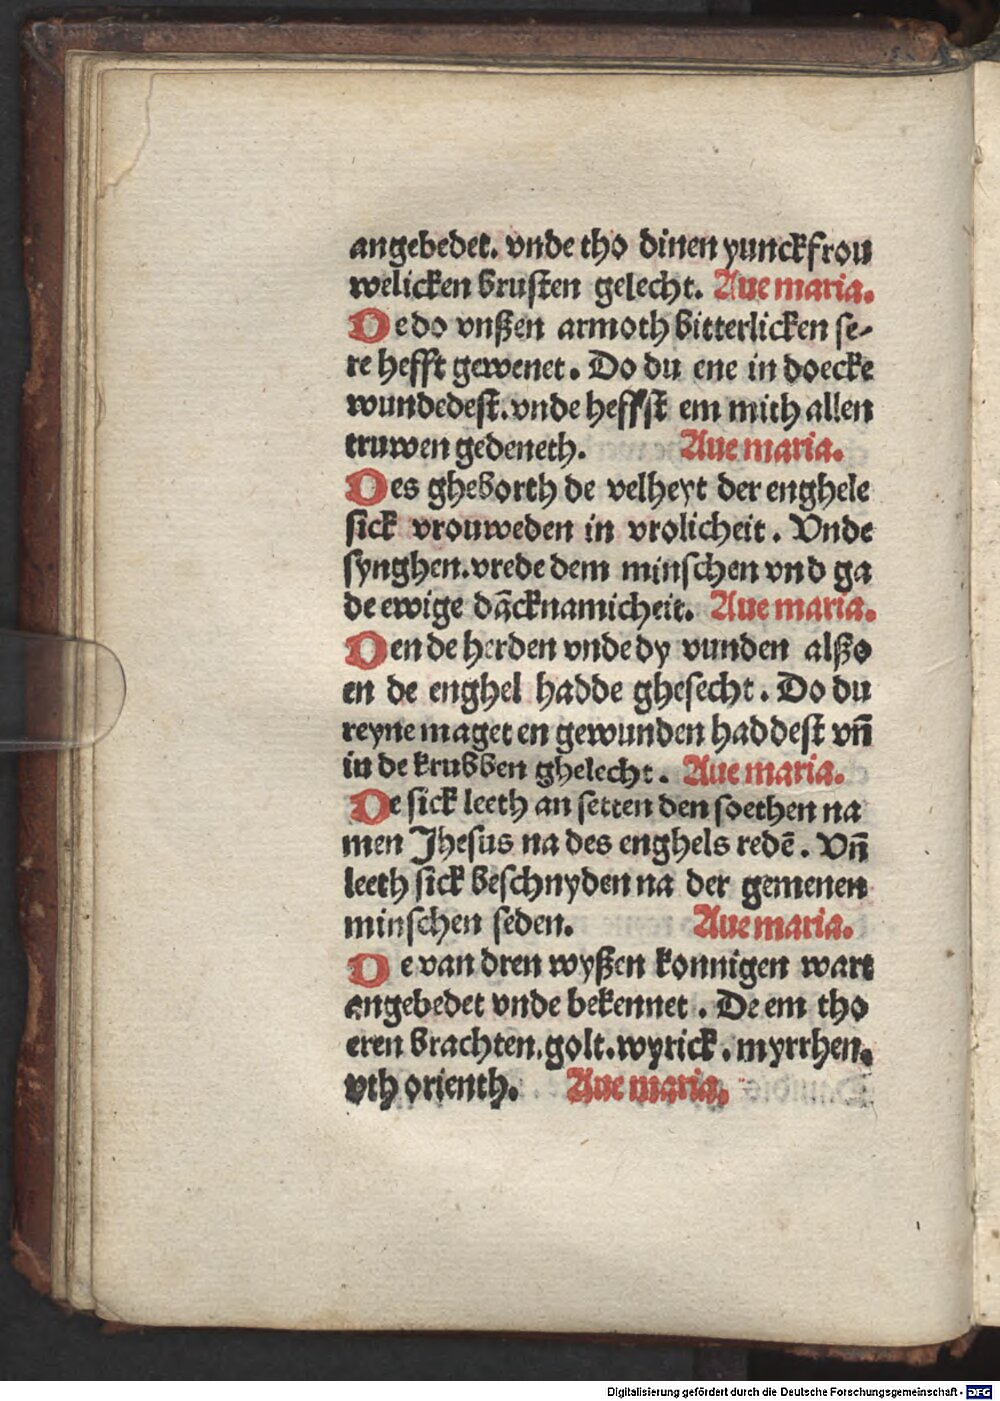 angebedet. vnde tho dinen yunckfrou
welicken brusten gelecht. Aue maria.
De do vnßen armoth bitterlicken se-
re hefft gewenet. Do du ene in doecke
wundedest. vnde heffst em mith allen
truwen gedeneth. Aue maria.
Des gheborth de velheyt der enghele
sick vrouweden in vrolicheit. Vnde
synghen. vrede dem minschen vnd ga
de ewige dācknamicheit. Aue maria.
Den de herden vnde dy vunden alßo
en de enghel hadde ghesecht. Do du
reyne maget en gewunden haddest vn̄
in de krubben ghelecht. Aue maria.
De sick leeth an setten den soethen na
men Jhesus na des enghels redē. Vn̄
leeth sick beschnyden na der gemenen
minschen seden. Aue maria.
De van dren wyßen konnigen wart
angebedet vnde bekennet. De em tho
eren brachten. golt. wyrick. myrrhen.
vth orienth. Aue maria.
Digitalisierung gefördert durch die Deutsche Forschungsgemeinschaft - DFG